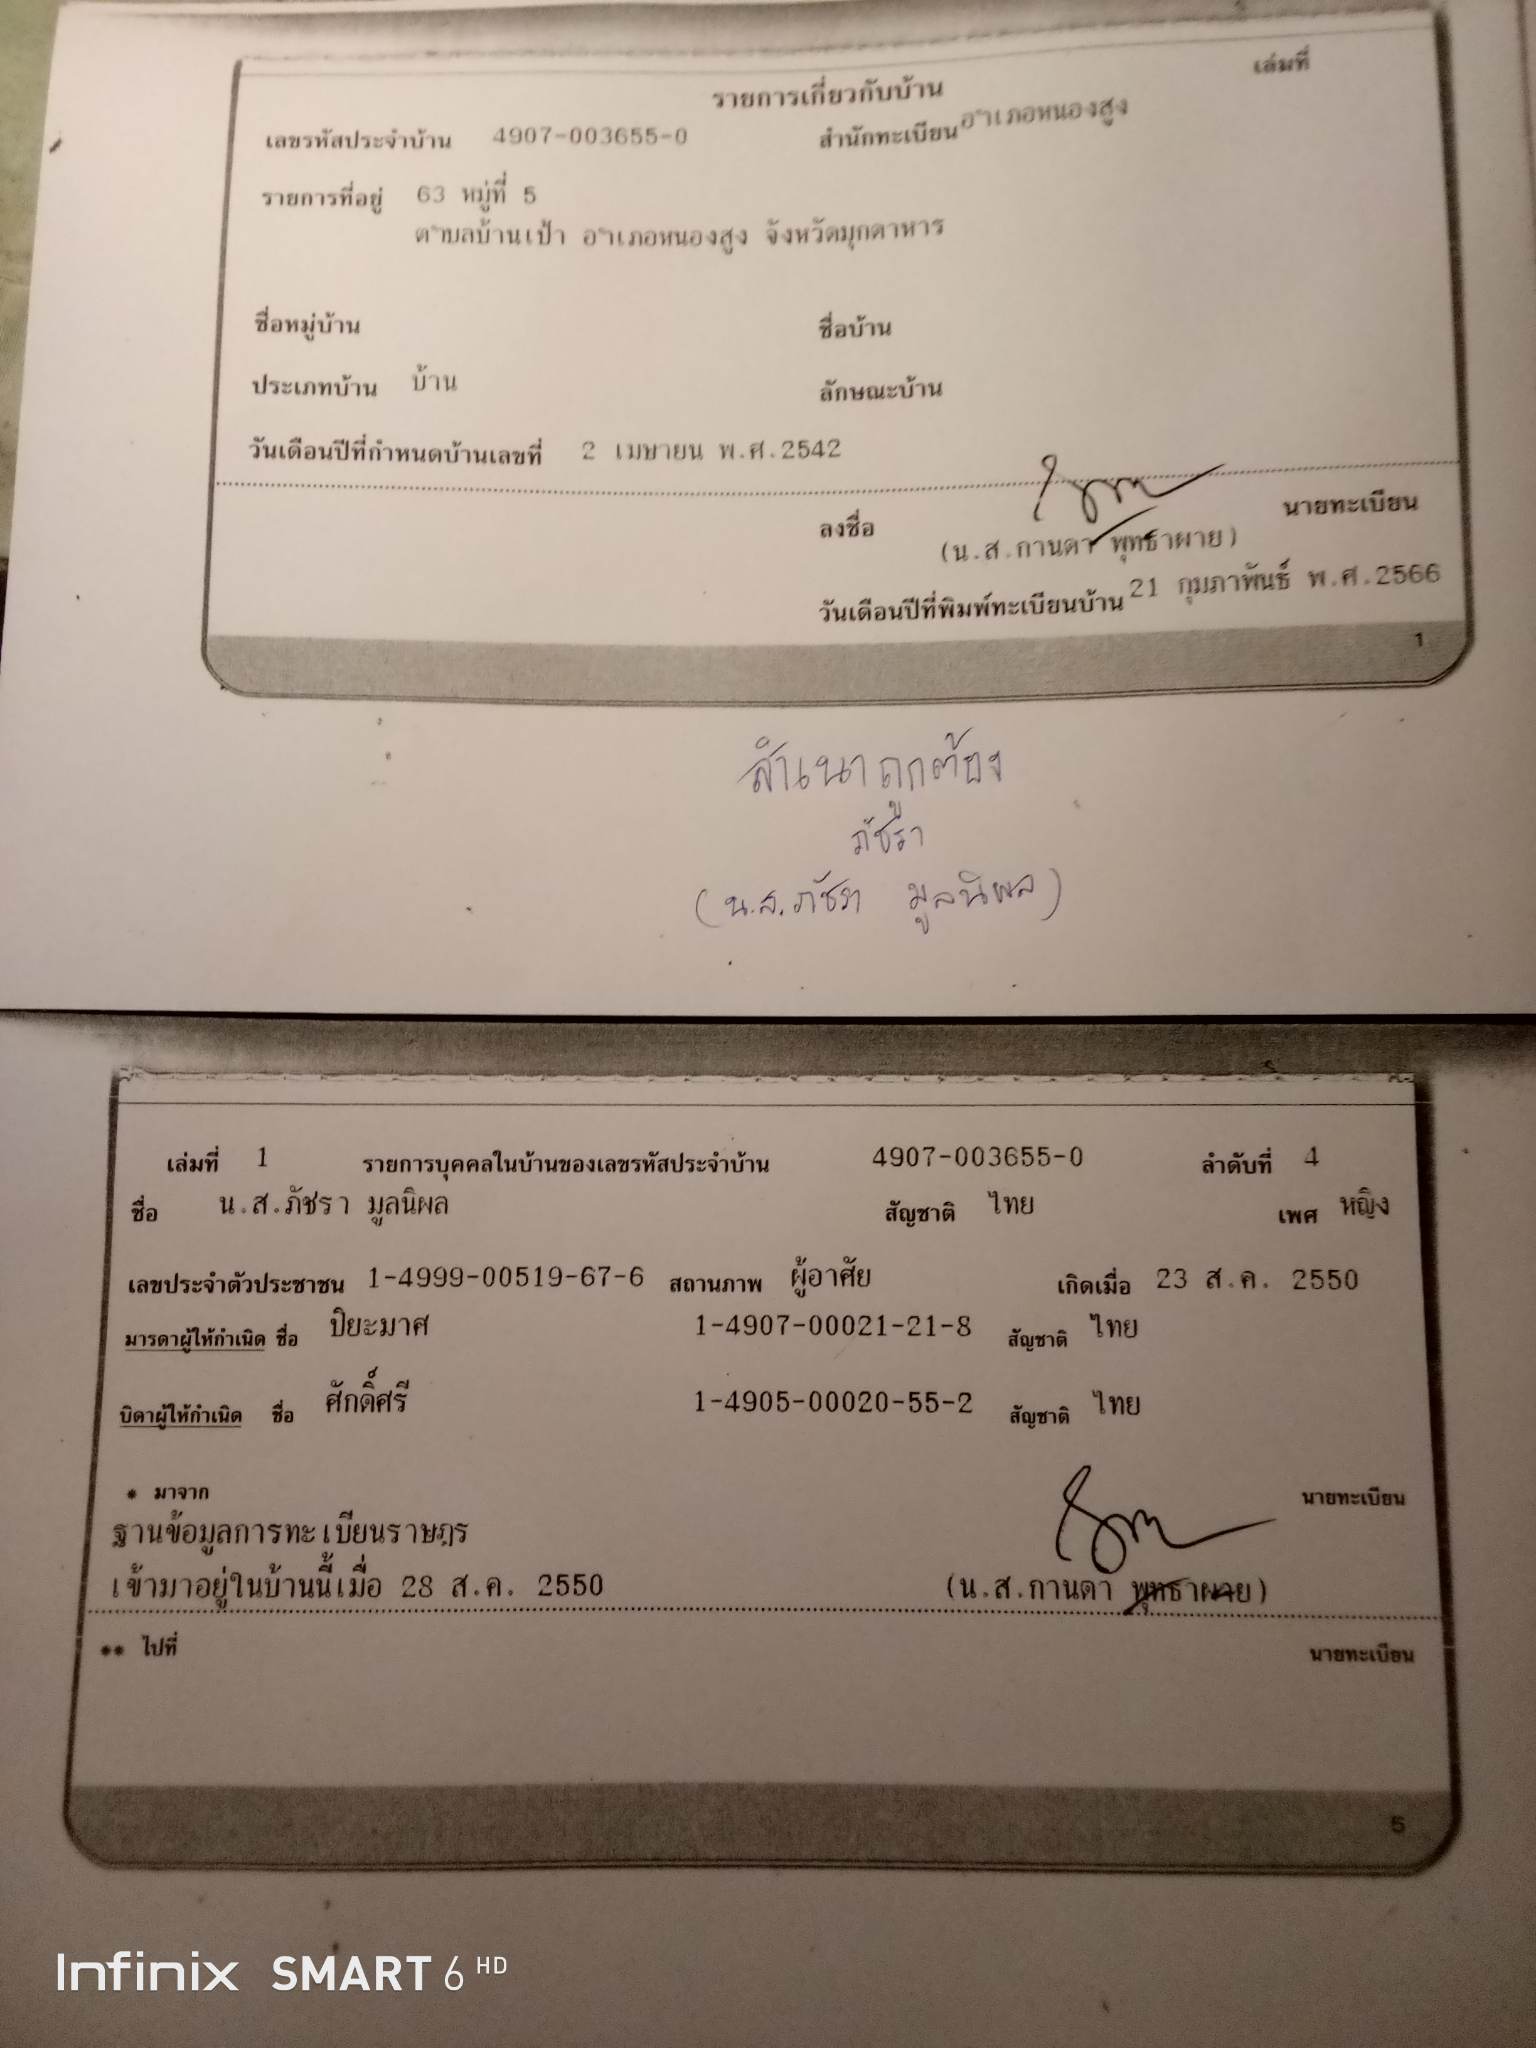 เล่มที่
รายการเกี่ยวกับบ้าน
เลขรหัสประจำบ้าน 4907-003655-0 สำนักทะเบียน อำเภอหนองสูง
รายการที่อยู่ 63 หมู่ที่ 5
ตำบลบ้านเป้า อำเภอหนองสูง จังหวัดมุกดาหาร
ชื่อหมู่บ้าน ชื่อบ้าน
ประเภทบ้าน บ้าน ลักษณะบ้าน
วันเดือนปีที่กำหนดบ้านเลขที่ 2 เมษายน พ.ศ.2542
ลงชื่อ นายทะเบียน
(น.ส.กานดา พุทธาผาย)
วันเดือนปีที่พิมพ์ทะเบียนบ้าน 21 กุมภาพันธ์ พ.ศ.2566
1
สำเนาถูกต้อง
ภัชรา
(น.ส.ภัชรา มูลนิผล)
เล่มที่ 1 รายการบุคคลในบ้านของเลขรหัสประจำบ้าน 4907-003655-0 ลำดับที่ 4
ชื่อ น.ส.ภัชรา มูลนิผล สัญชาติ ไทย เพศ หญิง
เลขประจำตัวประชาชน 1-4999-00519-67-6 สถานภาพ ผู้อาศัย เกิดเมื่อ 23 ส.ค. 2550
มารดาผู้ให้กำเนิด ชื่อ ปิยะมาศ 1-4907-00021-21-8 สัญชาติ ไทย
บิดาผู้ให้กำเนิด ชื่อ ศักดิ์ศรี 1-4905-00020-55-2 สัญชาติ ไทย
* มาจาก นายทะเบียน
ฐานข้อมูลการทะเบียนราษฎร
เข้ามาอยู่ในบ้านนี้เมื่อ 28 ส.ค. 2550 (น.ส.กานดา พุทธาผาย)
** ไปที่ นายทะเบียน
5
Infinix SMART 6 HD